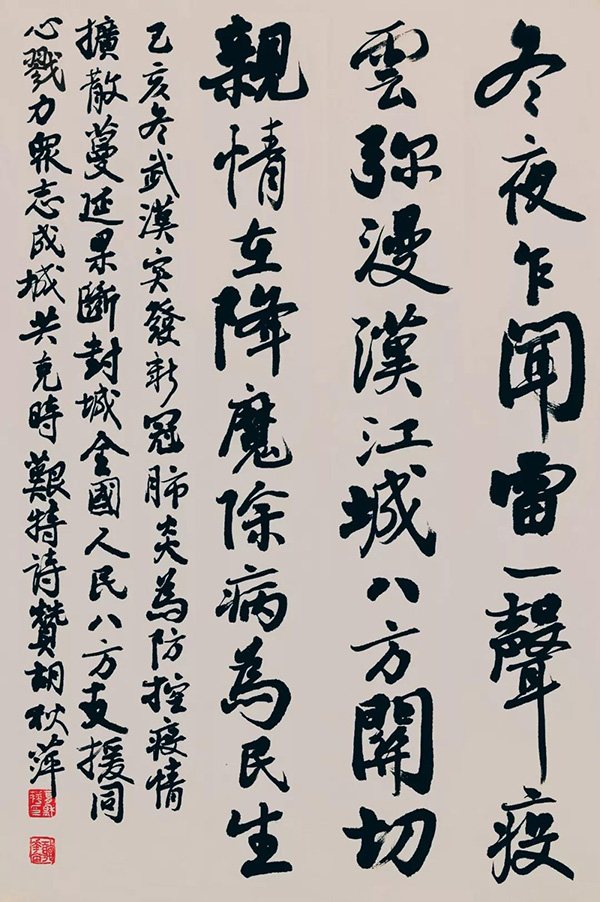 冬夜乍聞雷一聲疫
雲弥漫漢江城八方關切
親情在降魔除病為民生
己亥冬武漢突發新冠肺炎為防控疫情
擴散蔓延果斷封城全國人民八方支援同
心戮力眾志成城共克時艱特詩贊胡秋萍